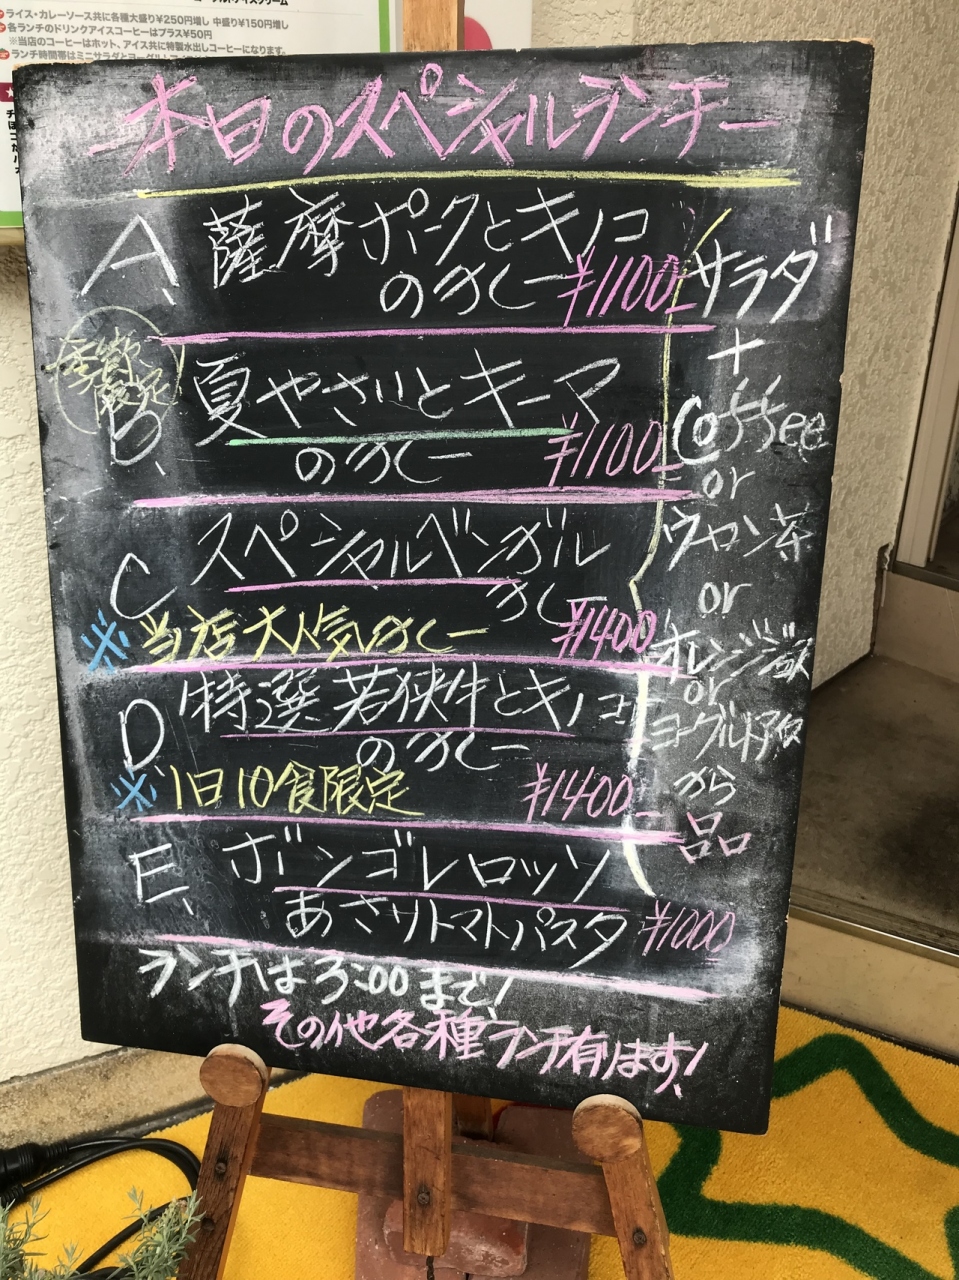 ライス・カレーソース共に各種大盛り¥250円増し 中盛り¥150円増し
各ランチのドリンクアイスコーヒーはプラス¥50円
※当店のコーヒーはホット、アイス共に特製水出しコーヒーになります。
ランチ時間帯はミニサラダと
本日のスペシャルランチー
A、薩摩ポークとキノコ
のカレー ¥1100-
季節限定
B、夏やさいとキーマ
のカレー ¥1100-
C スペシャルベンガル
カレー ¥1400
※当店大人気カレー
D、特選若狭牛とキノコ
のカレー
※1日10食限定 ¥1400-
E、ボンゴレロッソ
あさりトマトパスタ ¥1000
サラダ
+
Coffee
or
ウーロン茶
or
オレンジジュース
or
ヨーグルト
から
一品
ランチは3:00まで!
その他各種ランチ有ります!